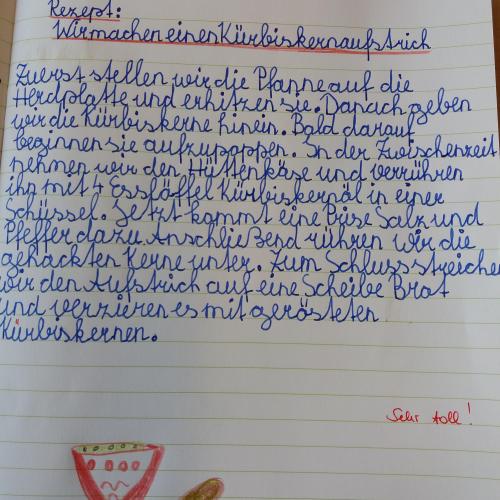 Rezept:
Wir machen einen Kürbiskernaufstrich
Zuerst stellen wir die Pfanne auf die
Herdplatte und erhitzen sie. Danach geben
wir die Kürbiskerne hinein. Bald darauf
beginnen sie aufzupoppen. In der Zwischenzeit
nehmen wir den Hüttenkäse und verrühren
ihn mit 4 Esslöffel Kürbiskernöl in einer
Schüssel. Jetzt kommt eine Prise Salz und
Pfeffer dazu. Anschließend rühren wir die
gehackten Kerne unter. Zum Schluss streiche
wir den Aufstrich auf eine Scheibe Brot
und verzieren es mit gerösteten
Kürbiskernen.
Sehr toll!